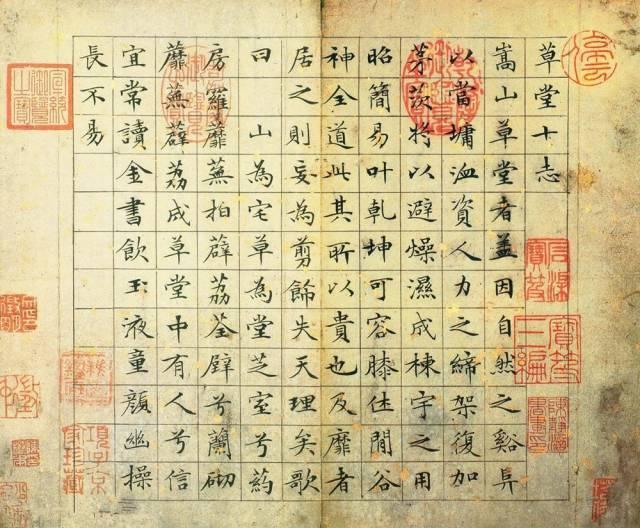 草堂十志
嵩山草堂者盖因自然之谿阜
以當墉洫資人力之締架復加
茅茨將以避燥濕成棟宇之用
昭簡易叶乾坤可容膝休閒谷
神全道此其所以貴也及靡者
居之則妄為剪飾失天理矣歌
曰 山為宅草為堂芝室兮葯
房羅蘼蕪拍薜荔荃壁兮蘭砌
蘼蕪薜荔成草堂中有人兮信
宜常讀金書飲玉液童顏幽操
長不易
石渠寶笈
寶笈三編
宣統御覽之寶
項子京家珍藏